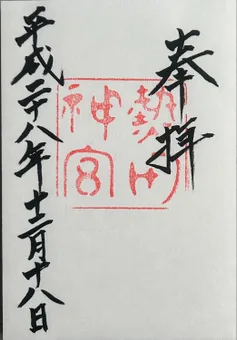 奉拝
勢州
神宮
平成二十八年十二月十八日